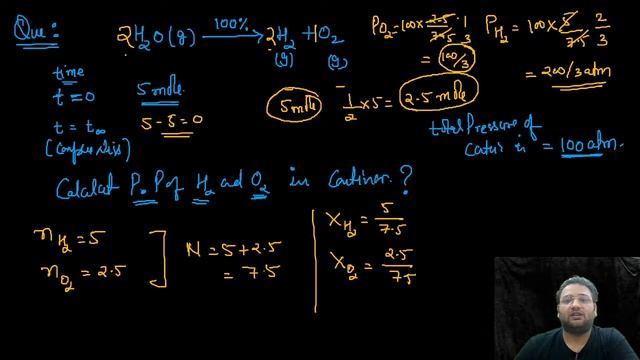 Que:
2H₂O(g) —100%→ 2H₂ + 1O₂
(g) (g)
time
t=0 5 mole
t = t∞ 5-5=0 5 mole 1/2 × 5 = 2.5 mole
PO₂ = 100 × 2.5/7.5 1/3
= 100/3
PH₂ = 100 × 5/7.5 2/3
= 200/3 atm
total Pressure of
= 100 atm.
Calculat P.P of H₂ ad O₂ in continer.?
nH₂ = 5
nO₂ = 2.5
N = 5+2.5
= 7.5
XH₂ = 5/7.5
XO₂ = 2.5/75